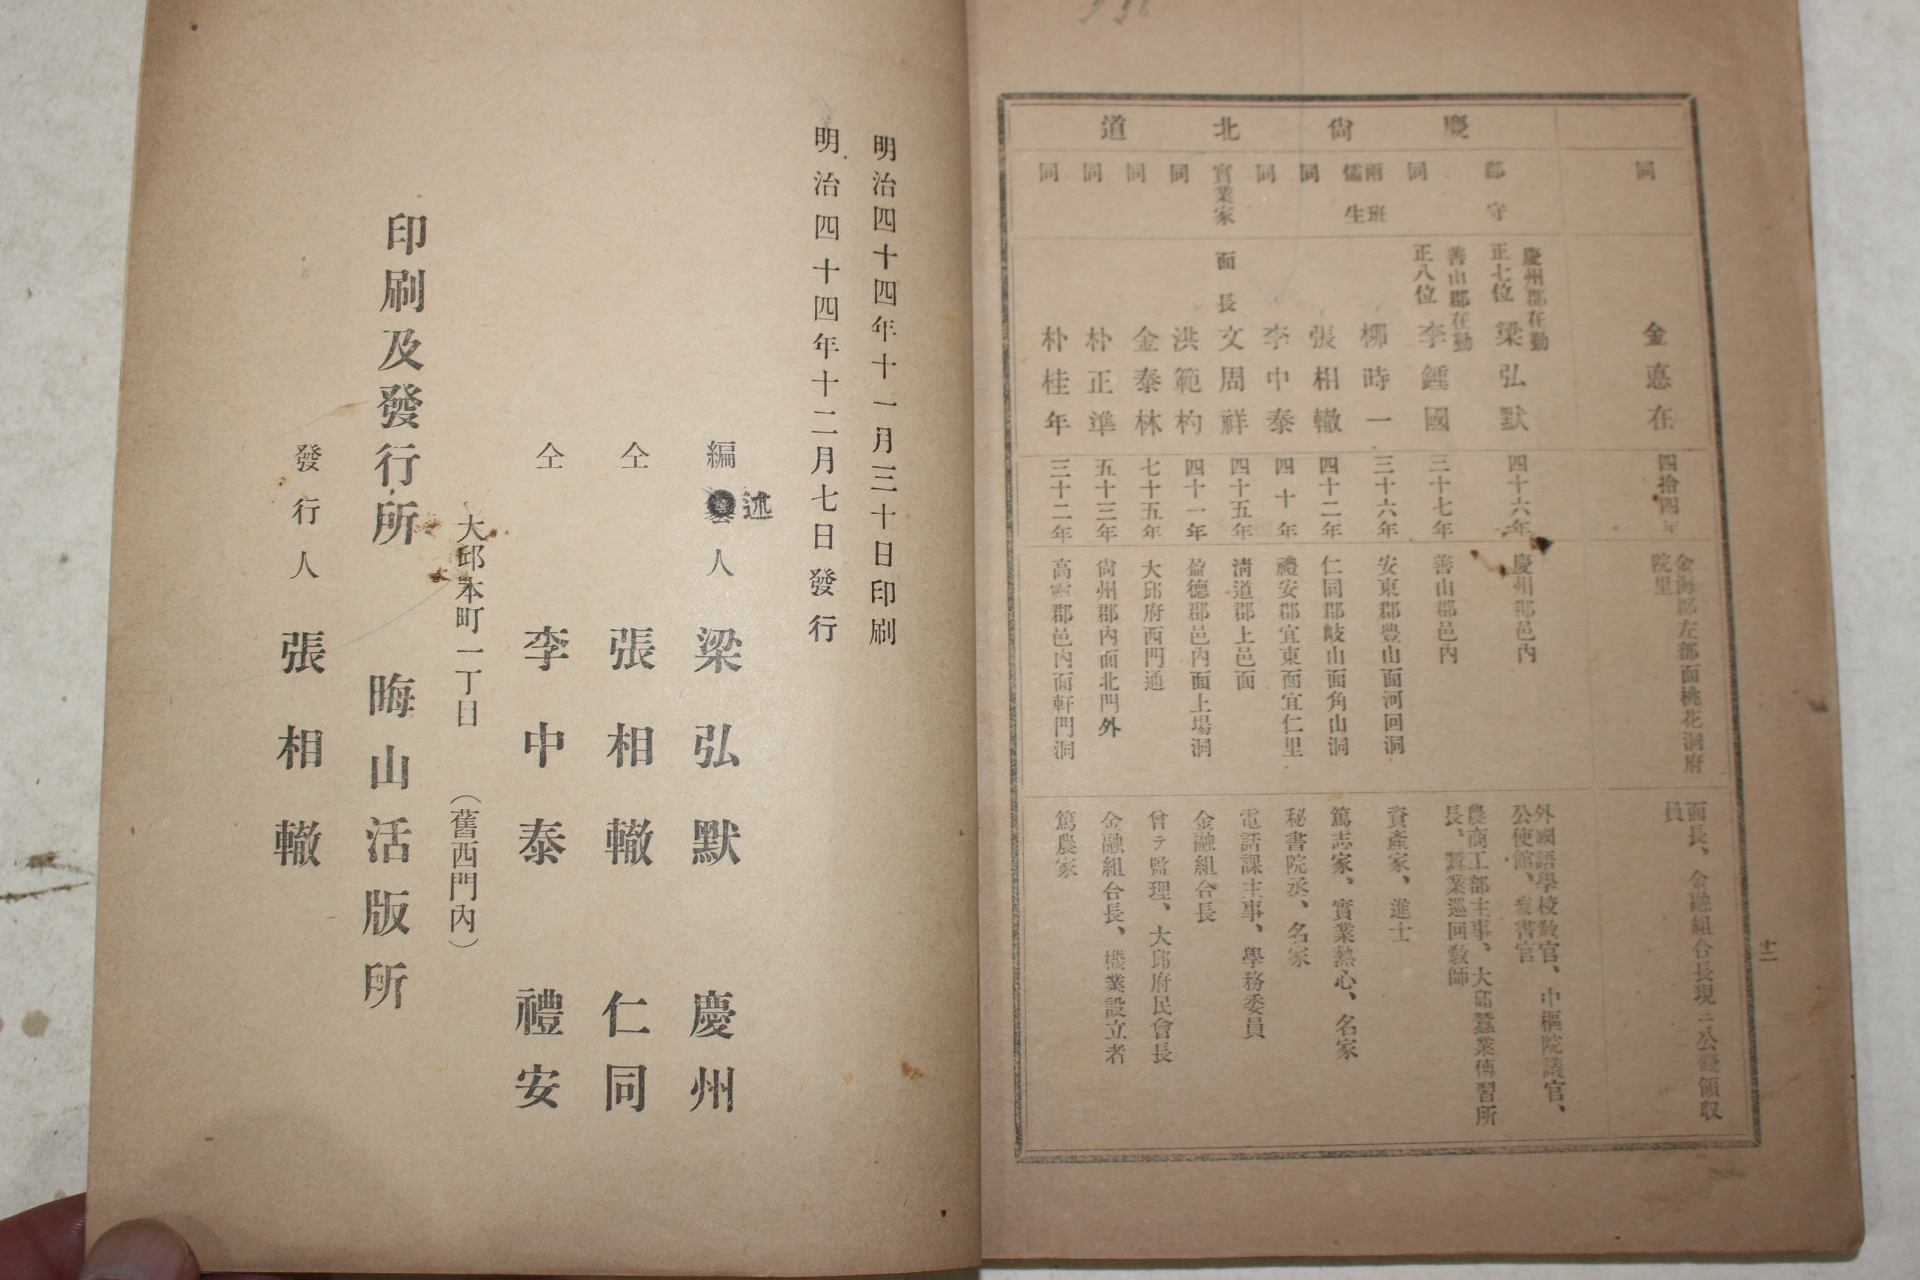 慶尙北道
同 金悳在 四拾四年 金海郡左部面桃花洞府院里 面長、金融組合長現ニ公錢領収員
郡守 慶州郡在勤 正七位 梁弘默 四十六年 慶州郡邑內 外國語學校敎官、中樞院議官、公使館、書官
同 善山郡在勤 正八位 李鍾國 三十七年 善山郡邑內 農商工部主事、大邱蠶業傳習所長、蠶業巡回敎師
兩班儒生 柳時一 三十六年 安東郡豊山面河回洞 資產家、進士
同 張相轍 四十二年 仁同郡岐山面角山洞 篤志家、實業熱心、名家
同 李中泰 四十年 禮安郡宜東面宜仁里 秘書院丞、名家
實業家 面長 文周祥 四十五年 淸道郡上邑面 電話課主事、學務委員
同 洪範杓 四十一年 盈德郡邑內面上場洞 金融組合長
同 金泰林 七十五年 大邱府西門通 曾テ監理、大邱府民會長
同 朴正準 五十三年 尙州郡內面北門外 金融組合長、機業設立者
同 朴桂年 三十二年 高靈郡邑內面軒門洞 篤農家
十二
明治四十四年十一月三十日印刷
明治四十四年十二月七日發行
編述人 梁弘默 慶州
仝 張相轍 仁同
仝 李中泰 禮安
大邱本町一丁目(舊西門內)
印刷及發行所 晦山活版所
發行人 張相轍